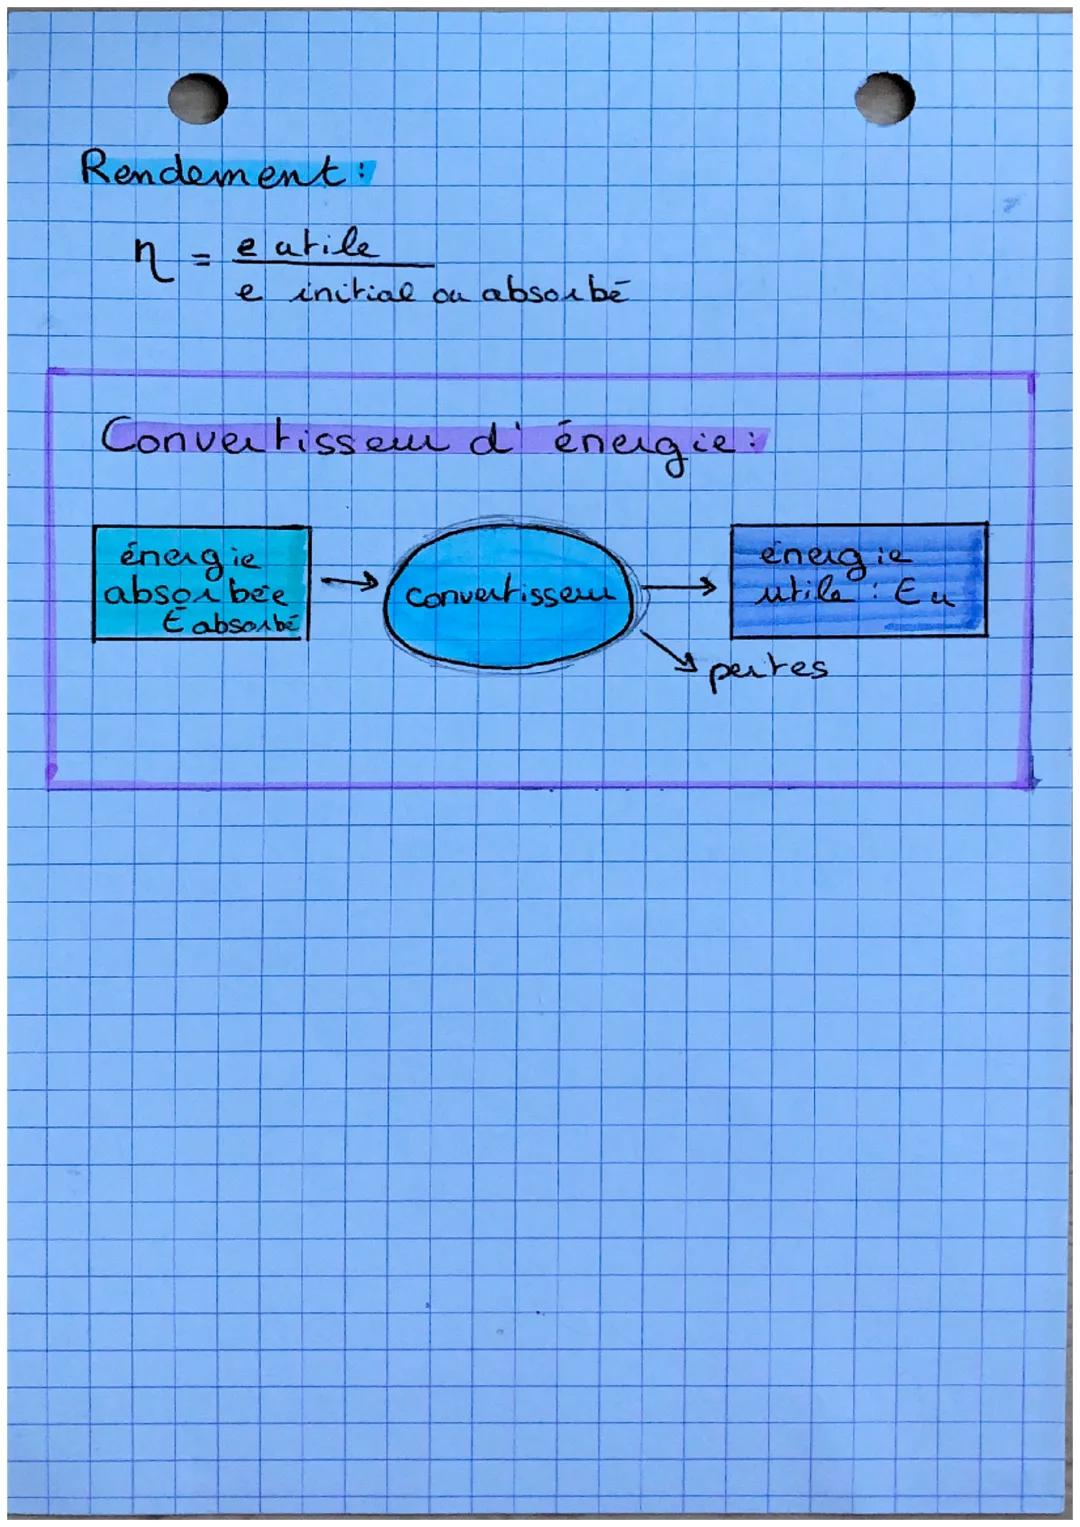 Rendement :
η = e utile
e initial ou absorbé
Convertisseur d' énergie :
énergie
absorbée
E absorbé
convertisseur
énergie
utile : Eu
pertes